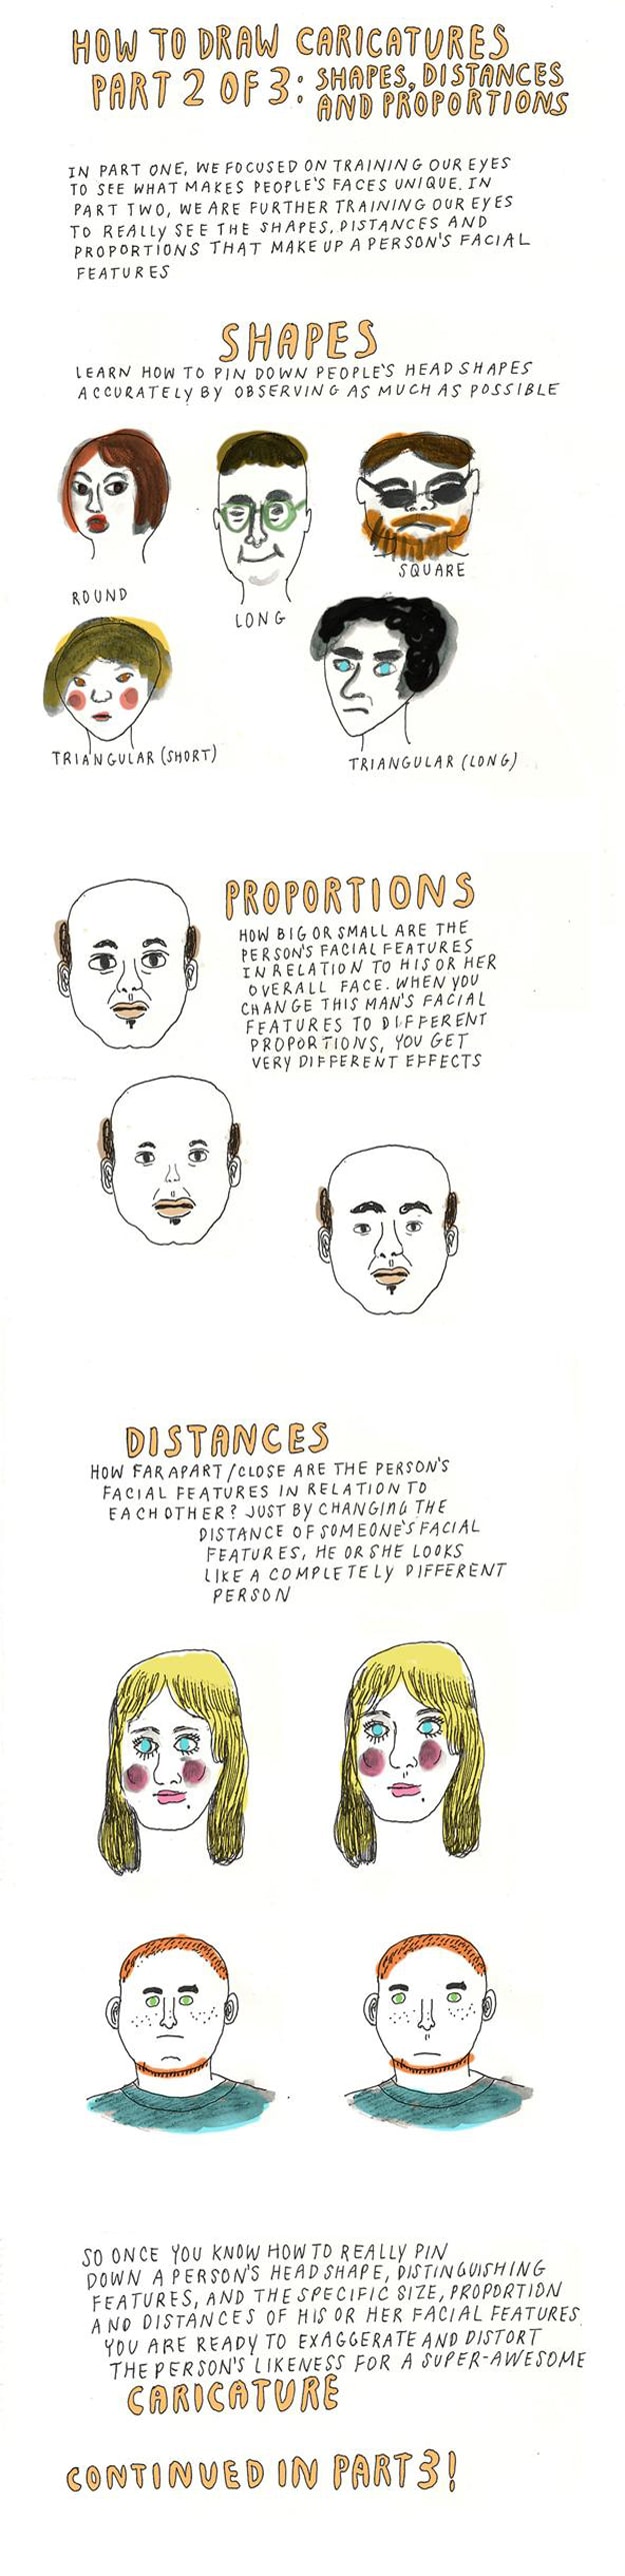 HOW TO DRAW CARICATURES
PART 2 OF 3: SHAPES, DISTANCES
AND PROPORTIONS
IN PART ONE, WE FOCUSED ON TRAINING OUR EYES
TO SEE WHAT MAKES PEOPLE'S FACES UNIQUE. IN
PART TWO, WE ARE FURTHER TRAINING OUR EYES
TO REALLY SEE THE SHAPES, DISTANCES AND
PROPORTIONS THAT MAKE UP A PERSON'S FACIAL
FEATURES
SHAPES
LEARN HOW TO PIN DOWN PEOPLE'S HEAD SHAPES
ACCURATELY BY OBSERVING AS MUCH AS POSSIBLE
ROUND
LONG
SQUARE
TRIANGULAR (SHORT)
TRIANGULAR (LONG)
PROPORTIONS
HOW BIG OR SMALL ARE THE
PERSON'S FACIAL FEATURES
IN RELATION TO HIS OR HER
OVERALL FACE. WHEN YOU
CHANGE THIS MAN'S FACIAL
FEATURES TO DIFFERENT
PROPORTIONS, YOU GET
VERY DIFFERENT EFFECTS
DISTANCES
HOW FAR APART/CLOSE ARE THE PERSON'S
FACIAL FEATURES IN RELATION TO
EACH OTHER? JUST BY CHANGING THE
DISTANCE OF SOMEONE'S FACIAL
FEATURES, HE OR SHE LOOKS
LIKE A COMPLETELY DIFFERENT
PERSON
SO ONCE YOU KNOW HOW TO REALLY PIN
DOWN A PERSON'S HEAD SHAPE, DISTINGUISHING
FEATURES, AND THE SPECIFIC SIZE, PROPORTION
AND DISTANCES OF HIS OR HER FACIAL FEATURES,
YOU ARE READY TO EXAGGERATE AND DISTORT
THE PERSON'S LIKENESS FOR A SUPER-AWESOME
CARICATURE
CONTINUED IN PART 3!